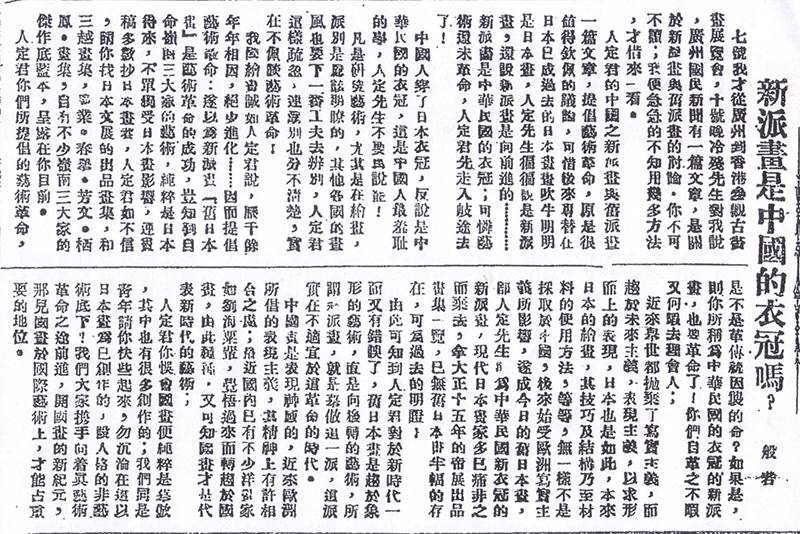 新派畫是中國的衣冠嗎？
般若
七號我才從廣州到香港參觀古書
畫展覽會，十號晚冷殘先生對我說
，廣州國民新聞有一篇文章，是關
於新派畫與舊派畫的討論。你不可
不讀；我便急急的不知用幾多方法
，才借來一看。
人定君的中國之新派畫與舊派畫
一篇文章，提倡藝術革命，原是很
值得欽佩的議論，可惜後來專替在
日本已成過去的日本畫吹牛明明
是日本畫，人定先生偏偏說是新派
畫，還說新派畫是向前進的………
新派畫是中華民國的衣冠；可憐藝
術還未革命，人定君先走入岐途去
了！
中國人穿了日本衣冠，反說是中
華民國的衣冠，這是中國人最羞恥
的事，人定先生不要亂說罷！
凡是研究藝術，尤其是在繪畫，
派別是應該明瞭的，其他各國的畫
風也要下一番工夫去辨別，人定君
這樣疏忽，連派別也分不清楚，實
在不佩談藝術革命！
我國繪畫誠如人定君說，歷千餘
年年相因，絕少進化………因而提倡
藝術革命：遂以為新派畫『舊日本
畫』是藝術革命的成功，豈知到自
命嶺南三大家的藝術，純粹是日本
得來，不單獨受日本畫影響，連畫
稿多數抄日本畫，人定君如不信
，請你找日本文展的出品畫集，和
三越畫集，春挙。芳文。栖
鳳。畫集，自有不少嶺南三大家的
傑作底藍本，呈露在你目前。
人定君你們所提倡的藝術革命，
是不是革傳統因襲的命？如果是，
則你所稱為中華民國的衣冠的新派
畫，也要革命了！你們自革之不暇
又何暇去理會人；
近來舉世都拋棄了寫實主義，而
趨於未來主義，表現主義，以求形
而上的表現，日本也是如此，本來
日本的繪畫，其技巧及結構乃至材
料的使用方法，等等，無一樣不是
採取於中國，後來始受歐洲寫實主
義所影響，遂成今日的舊日本畫，
即人定先生所為中華民國新衣冠的
新派畫，現代日本畫家多已痛非之
而棄去，拿大正十五年的帝展出品
畫集一覽，已無舊日本畫半幅的存
在，可為過去的明證；
由此可知到人定君對於新時代一
而又有錯誤了，舊日本畫是趨於象
形的藝術，直是向後轉的藝術，所
謂新派畫，就是摹倣這一派，這派
實在不適宜於這革命的時代。
中國畫是表現神感的，近來歐洲
所倡的表現主義，其精神上有許相
合之處；最近國內已有不少洋畫家
如劉海粟輩，覺悟過來而轉趨於國
畫，由此種種，又可知國畫才是代
表新時代的藝術；
人定君你悞會國畫便純粹是摹倣
，其中也有很多創作的；我們同是
青年請你快些起來，勿沉淪在這以
日本畫為己創作的，毀人格的非藝
術底下！我們大家携手向着真藝術
革命之途前進，開國畫的新紀元，
那兒國畫於國際藝術上，才能占重
要的地位。